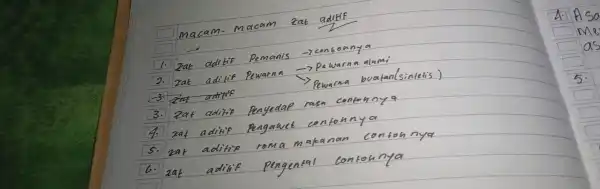 macam - macam zat aditif
1. zat aditif Pemanis → contohnya
2. zat aditif Pewarna → Pewarna alami
→ Pewarna buatan (sintetis)
3. zat aditif
3. zat aditif Penyedap rasa contohnya
4. zat aditif Pengawet contohnya
5. zat aditif roma makanan contohnya
6. zat aditif Pengental contohnya
4. Asa
as
5.